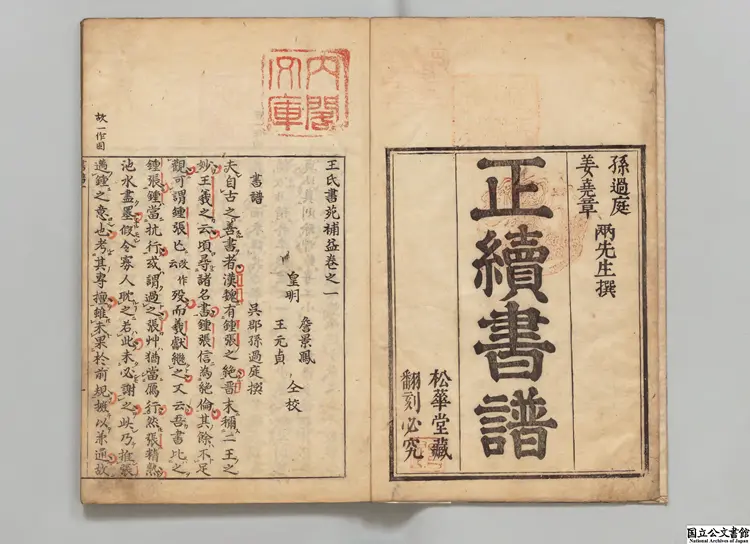 孫過庭
姜堯章
兩先生撰
正續書譜
松華堂藏
翻刻必究
內閣
文庫
故一作固
王氏書苑補益卷之一
皇明
詹景鳳
王元貞
仝校
書譜
吳郡孫過庭撰
夫自古之善書者漢魏有鍾張之絕晉末稱二王之
妙王羲之云頃尋諸名書鍾張信為絕倫其餘不足
觀可謂鍾張歿而羲獻繼之又云吾書比之
鍾張鍾當抗行或謂過之張艸猶當鴈行然張精熟
池水盡墨假令寡人耽之若此未必謝之此乃推張
邁鍾之意也考其專擅雖未果於前規摭以兼通故
国立公文書館
National Archives of Japan